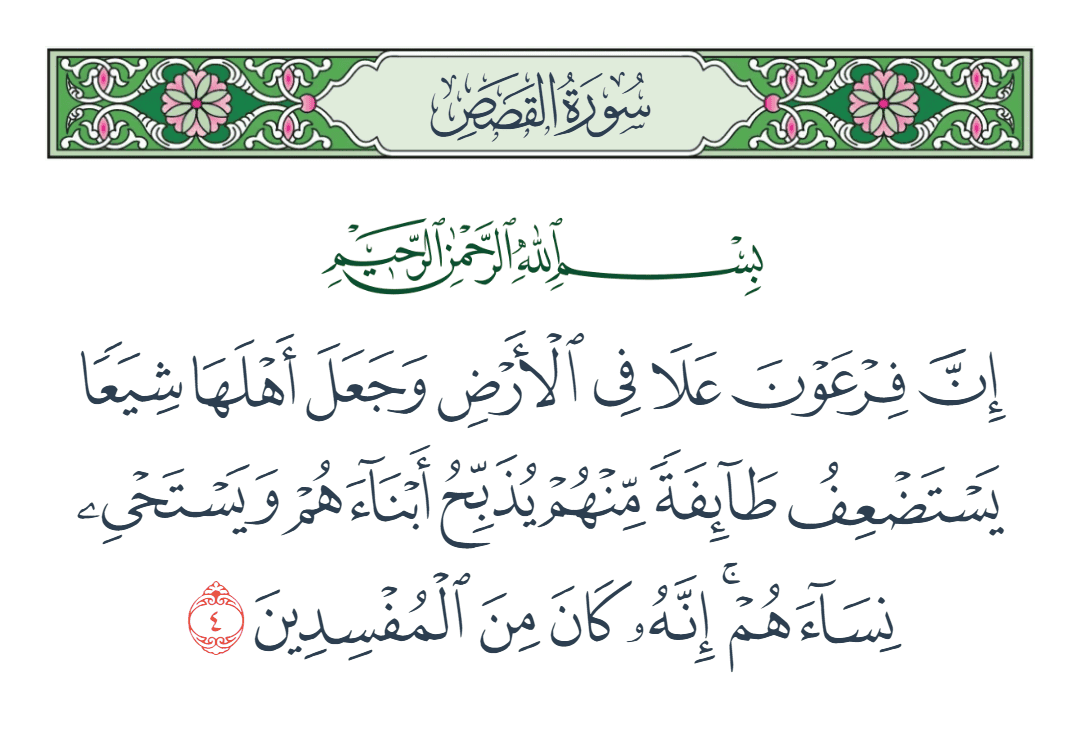 سُورَةُ القَصَصِ
بِسْمِ ٱللَّهِ ٱلرَّحْمَٰنِ ٱلرَّحِيمِ
إِنَّ فِرْعَوْنَ عَلَا فِى ٱلْأَرْضِ وَجَعَلَ أَهْلَهَا شِيَعًا
يَسْتَضْعِفُ طَآئِفَةً مِّنْهُمْ يُذَبِّحُ أَبْنَآءَهُمْ وَيَسْتَحْىِۦ
نِسَآءَهُمْ ۚ إِنَّهُۥ كَانَ مِنَ ٱلْمُفْسِدِينَ ٤